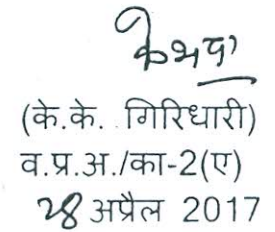 (के.के. गिरिधारी)
व.प्र.अ./का-2(ए)
28 अप्रैल 2017